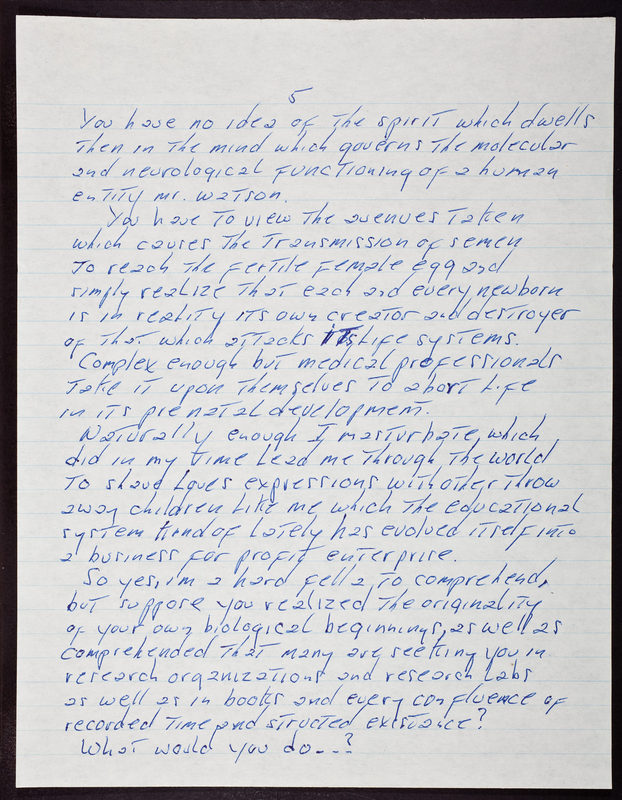 5
You have no idea of the spirit which dwells
then in the mind which governs the molecular
and neurological functioning of a human
entity mr. watson.
You have to view the avenues taken
which causes the transmission of semen
to reach the fertile female egg and
simply realize that each and every newborn
is in reality its own creator and destroyer
of that which attacks its Life systems.
Complex enough but medical professionals
take it upon themselves to abort Life
in its prenatal development.
Naturally enough I masturbate, which
did in my time Lead me through the world
to share Loves expressions with other throw
away children Like me, which the educational
system kind of Lately has evolved itself into
a business for profit enterprise.
So yes, im a hard fella to comprehend,
but suppose you realized the originality
of your own biological beginnings, as well as
comprehended that many are seeking you in
research organizations and research Labs
as well as in books and every confluence of
recorded time and structed existance?
What would you do---?